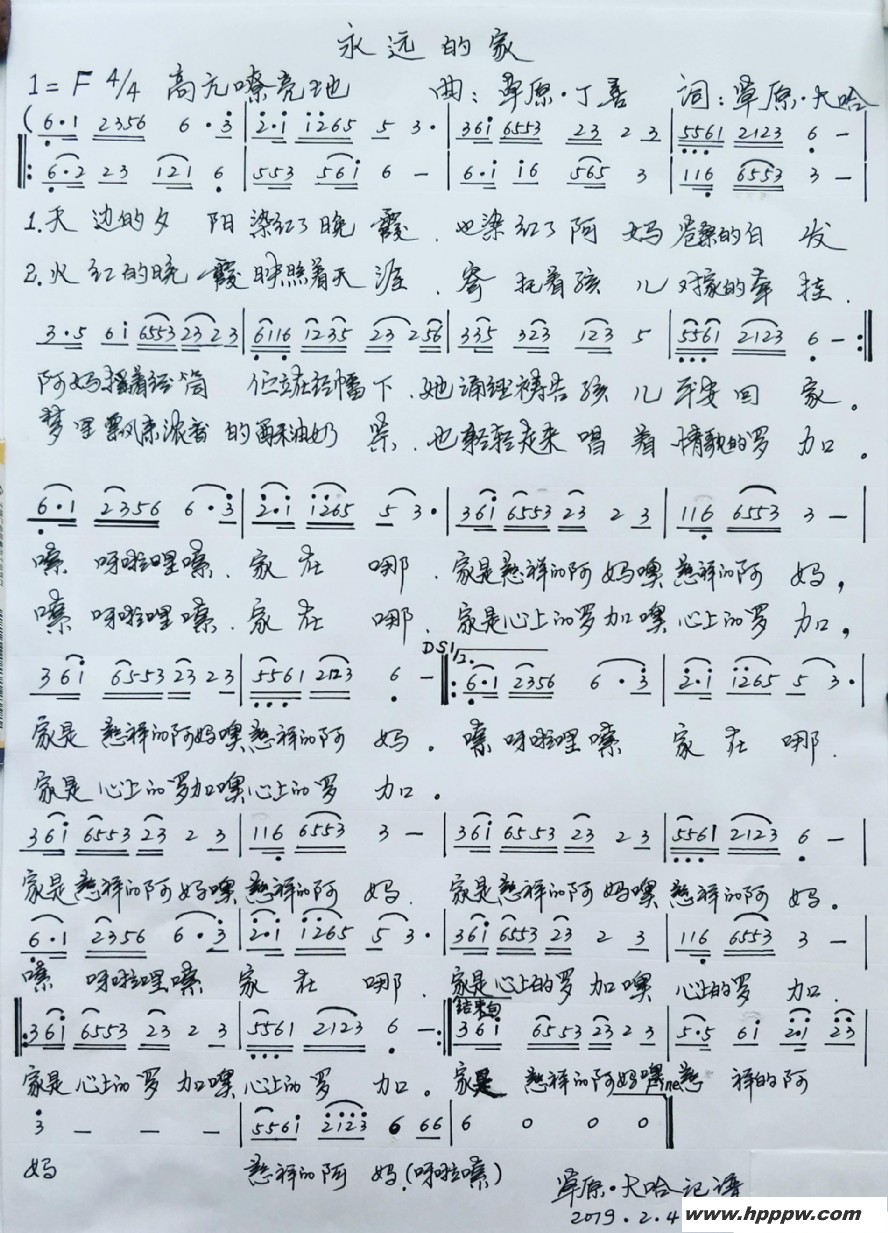 永远的家
1=F 4/4 高亢嘹亮地 曲：草原·丁真 词：草原·大哈
(6·1 2356 6·3 | 2·1 1265 5 3· | 361 6553 23 2 3 | 5561 2123 6 —
6·2 23 121 6 | 553 561 6 — | 6·1 16 565 3 | 116 6553 3 —
1.天边的夕阳染红晚霞.也染红了阿妈苍桑的白发
2.火红的晚霞映照着天涯.寄托着孩儿对家的牵挂.
3·5 61 6553 23 23 | 6116 1235 23 256 | 335 323 123 5 | 5561 2123 6 — :||
阿妈摇着经筒 伫立在经幡下.她诵经祷告孩儿平安回家。
梦里飘来浓香的酥油奶茶.也轻轻走来唱着情歌的罗加。
6·1 2356 6·3 | 2·1 1265 5 3· | 361 6553 23 2 3 | 116 6553 3 — |
嗦呀啦哩嗦.家在哪.家是慈祥的阿妈噢慈祥的阿妈，
嗦呀啦哩嗦.家在哪.家是心上的罗加噢心上的罗加，
DS1/2.
361 6553 23 2 3 | 5561 2123 6 — ||: 6·1 2356 6·3 | 2·1 1265 5 3· |
家是慈祥的阿妈噢慈祥的阿妈。嗦呀啦哩嗦 家在哪.
家是心上的罗加噢心上的罗加。
361 6553 23 2 3 | 116 6553 3 — | 361 6553 23 2 3 | 5561 2123 6 — |
家是慈祥的阿妈噢慈祥的阿妈.家是慈祥的阿妈噢慈祥的阿妈。
6·1 2356 6·3 | 2·1 1265 5 3· | 361 6553 23 2 3 | 116 6553 3 — |
嗦呀啦哩嗦 家在哪.家是心上的罗加噢心上的罗加.
结束句
||:361 6553 23 2 3 | 5561 2123 6 — :|| 361 6553 23 2 3 | 5·5 61 2·1 23
家是心上的罗加噢心上的罗加。家是慈祥的阿妈噢慈祥的阿
3 — — — | 5561 2123 6 66 | 6 0 0 0 ||
妈 慈祥的阿妈.(呀啦嗦)
草原·大哈记谱
2019.2.4
www.hpppw.com